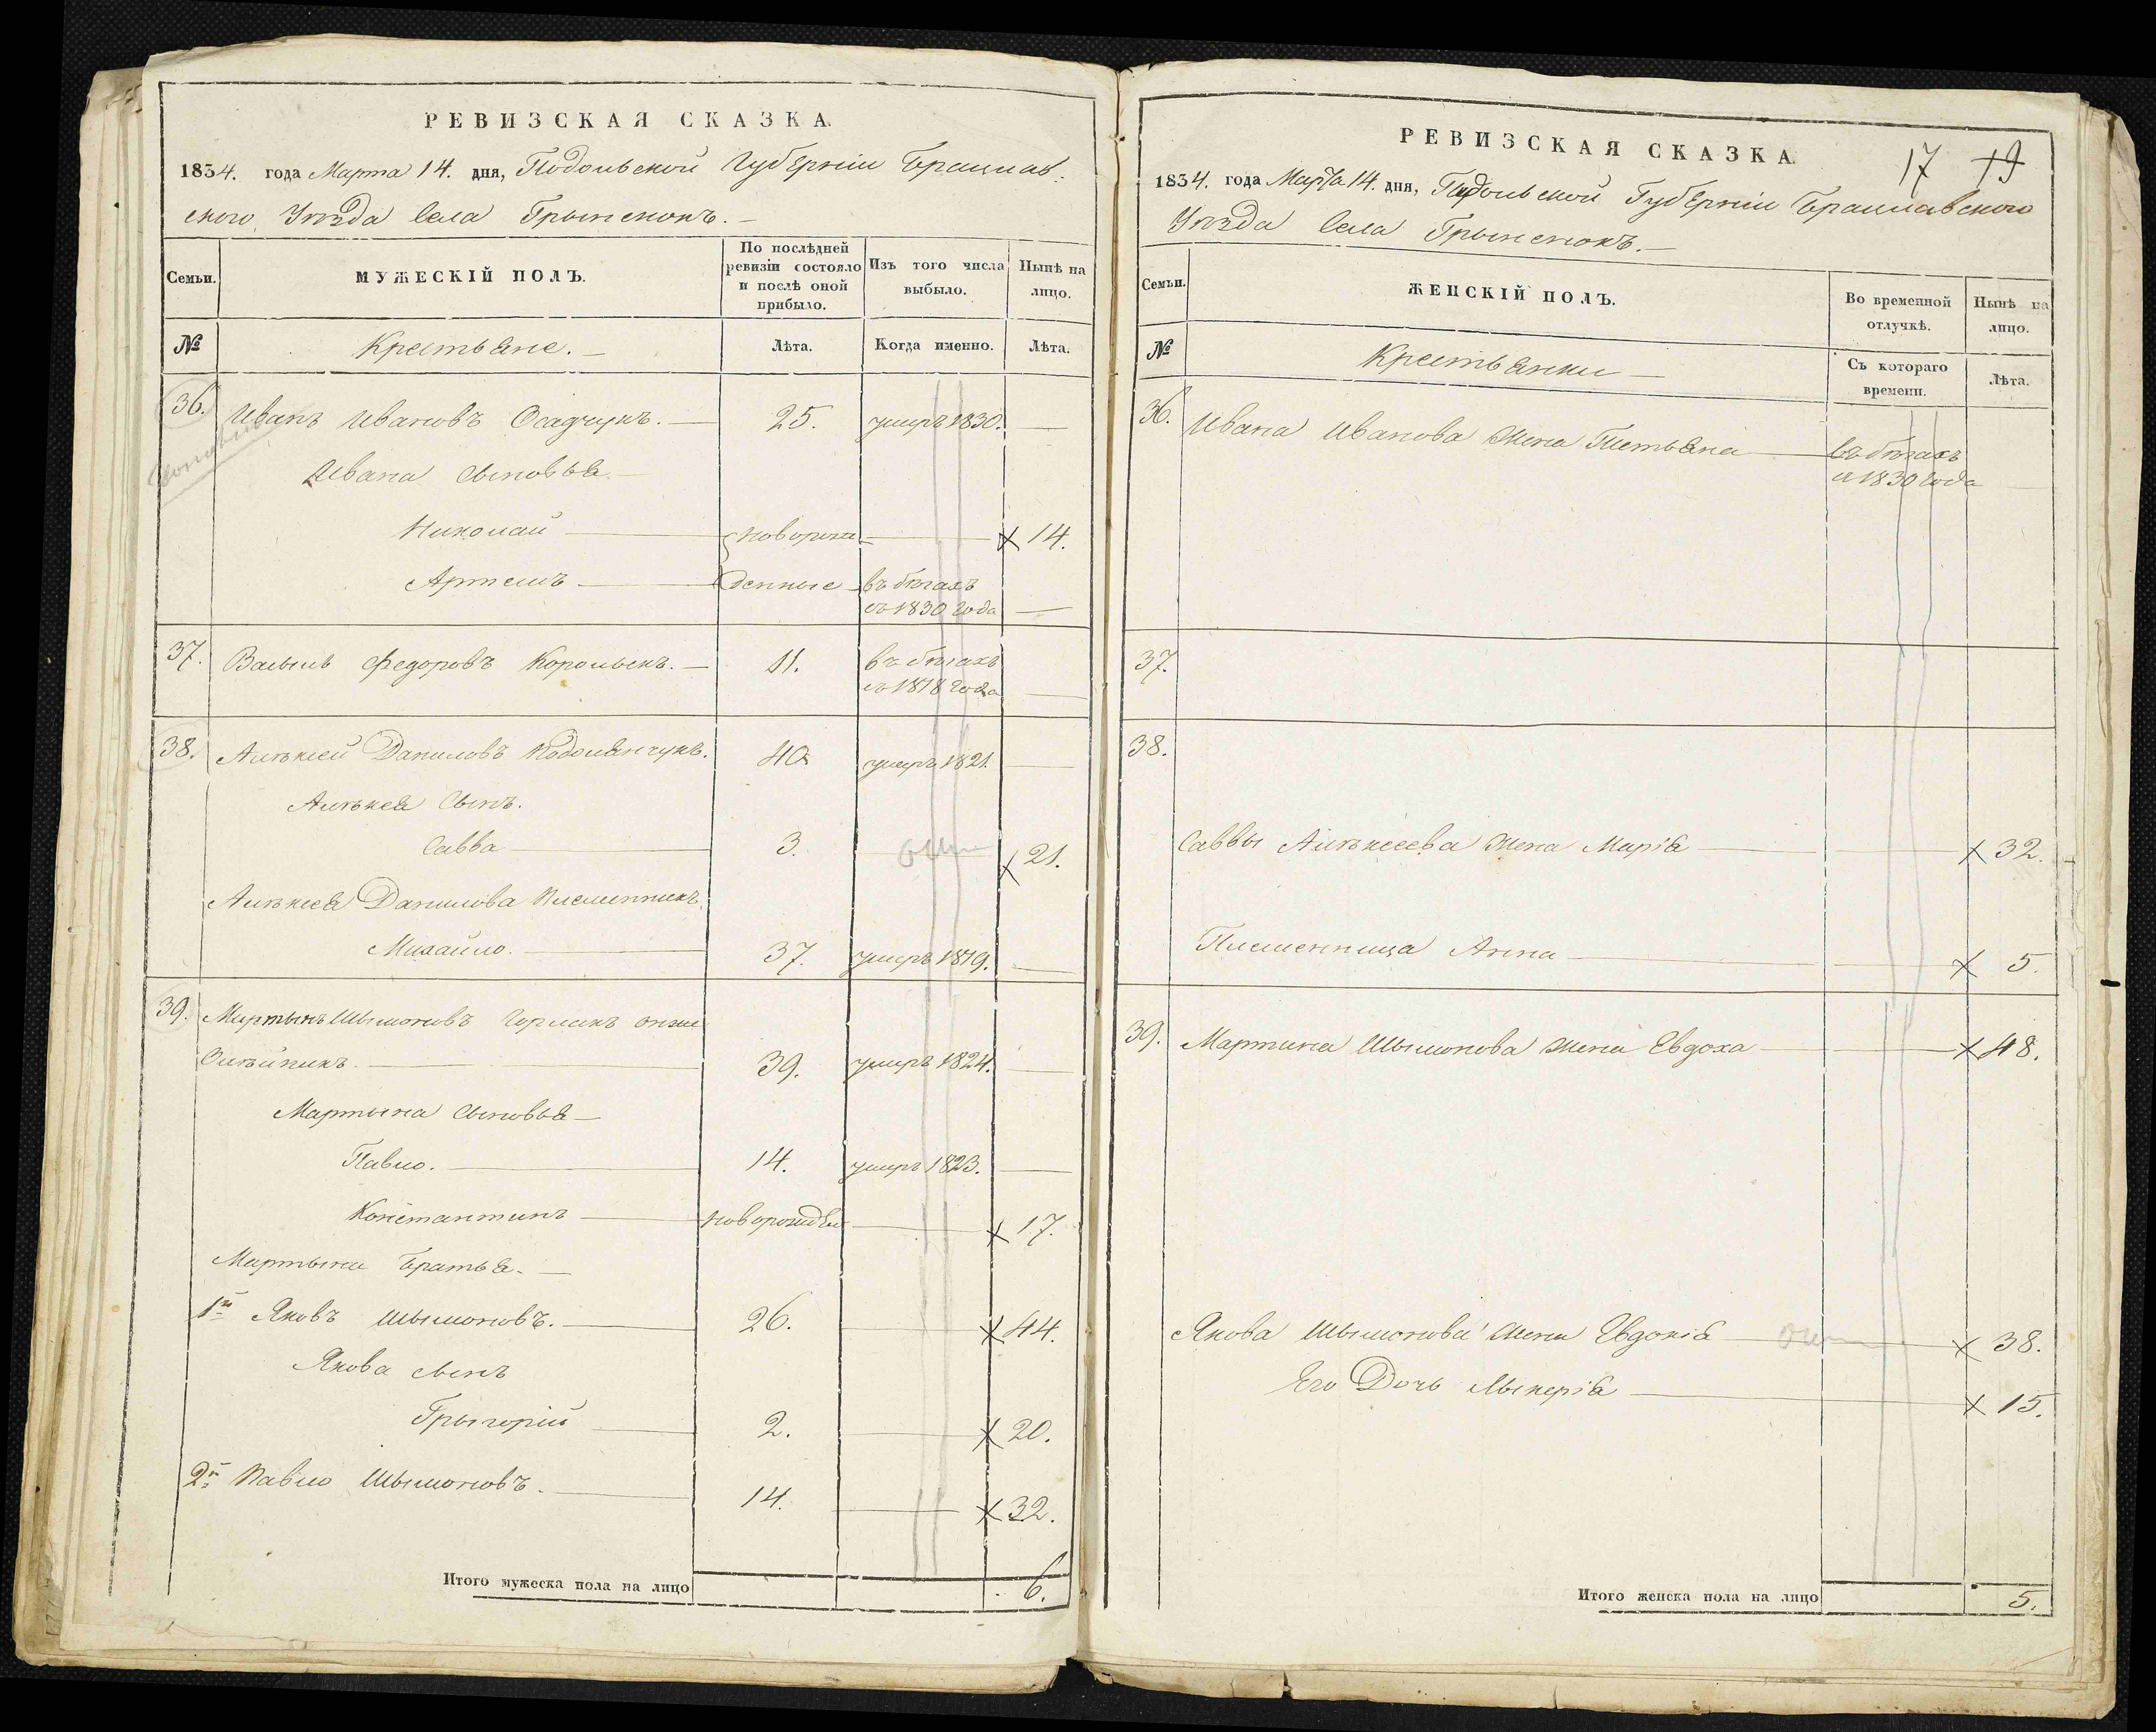 РЕВИЗСКАЯ СКАЗКА.
1834. года Марта 14. дня, Подольской Губерніи Брацлав-
ского Уѣзда Села Грыненокъ.
Семьи.
МУЖЕСКІЙ ПОЛЪ.
По послѣдней ревизіи состояло и послѣ оной прибыло.
Изъ того числа выбыло.
Нынѣ на лицо.
№
Крестьяне.
Лѣта.
Когда именно.
Лѣта.
36. Иванъ Ивановъ Осадчукъ. 25. умеръ 1830.
Ивана Сыновья
Николай новорож- 14.
Артемъ денные въ бѣгахъ
съ 1830 года
37. Василь Федоровъ 11. въ бѣгахъ
съ 1818 года
38. Алѣксей Даниловъ 40 умеръ 1821.
Алѣксея Сынъ.
Савва 3. 21.
Алѣксея Данилова Племенникъ
Михайло. 37. умеръ 1819.
39. Мартынъ Шымоновъ онже
Олѣйникъ. 39. умеръ 1824.
Мартына Сыновья
Павло. 14. умеръ 1823.
Константинъ новорожден 17.
Мартына Братья.
1й Яковъ Шымоновъ. 26. 44.
Якова сынъ
Грыгорій 2. 20.
2й Павло Шымоновъ. 14. 32.
Итого мужеска пола на лицо 6.
РЕВИЗСКАЯ СКАЗКА.
17 19
1834. года Марта 14. дня, Подольской Губерніи Брацлавского
Уѣзда Села Грыненокъ.
Семьи.
ЖЕНСКІЙ ПОЛЪ.
Во временной отлучкѣ.
Нынѣ на лицо.
№
Крестьянки
Съ котораго времени.
Лѣта.
36. Ивана Иванова жена Тетьяна въ бѣгахъ
съ 1830 года
37.
38.
Саввы Алѣксеева жена Марія 32.
Племенница Анна 5.
39. Мартина Шымонова жена Евдоха 48.
Якова Шымонова жена Евдокія 38.
Его Дочь Лыкерія 15.
Итого женска пола на лицо 5.